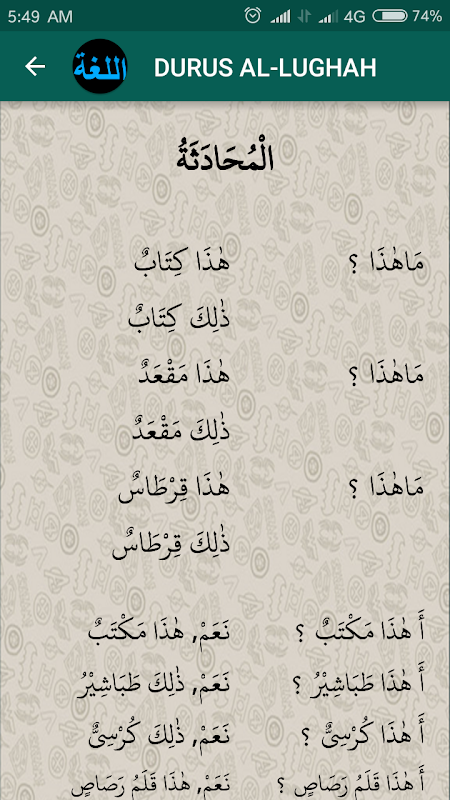 5:49 AM 4G 74%
اللغة DURUS AL-LUGHAH
الْمُحَادَثَةُ
مَاهٰذَا ؟ هٰذَا كِتَابٌ
ذٰلِكَ كِتَابٌ
مَاهٰذَا ؟ هٰذَا مَقْعَدٌ
ذٰلِكَ مَقْعَدٌ
مَاهٰذَا ؟ هٰذَا قِرْطَاسٌ
ذٰلِكَ قِرْطَاسٌ
أَ هٰذَا مَكْتَبٌ ؟ نَعَمْ, هٰذَا مَكْتَبٌ
أَ هٰذَا طَبَاشِيْرُ ؟ نَعَمْ, ذٰلِكَ طَبَاشِيْرُ
أَ هٰذَا كُرْسِىٌّ ؟ نَعَمْ, ذٰلِكَ كُرْسِىٌّ
أَ هٰذَا قَلَمُ رَصَاصٍ ؟ نَعَمْ, هٰذَا قَلَمُ رَصَاصٍ